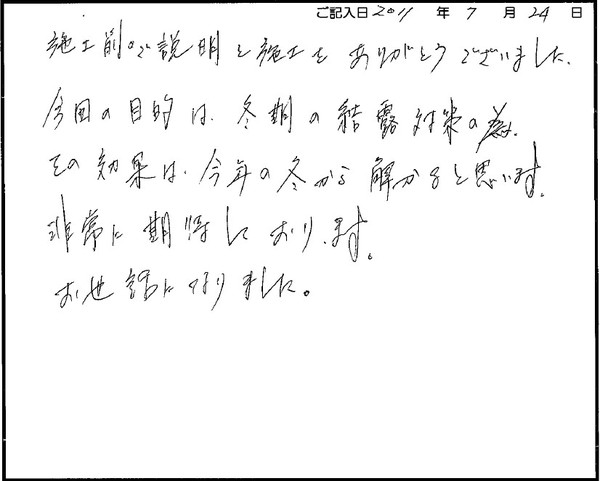 ご記入日 2011 年 7 月 24 日
施工前の説明と施工を ありがとうございました。
今回の目的は、冬期の結露対策の為、
その効果は、今年の冬から解かると思います。
非常に期待しております。
お世話になりました。